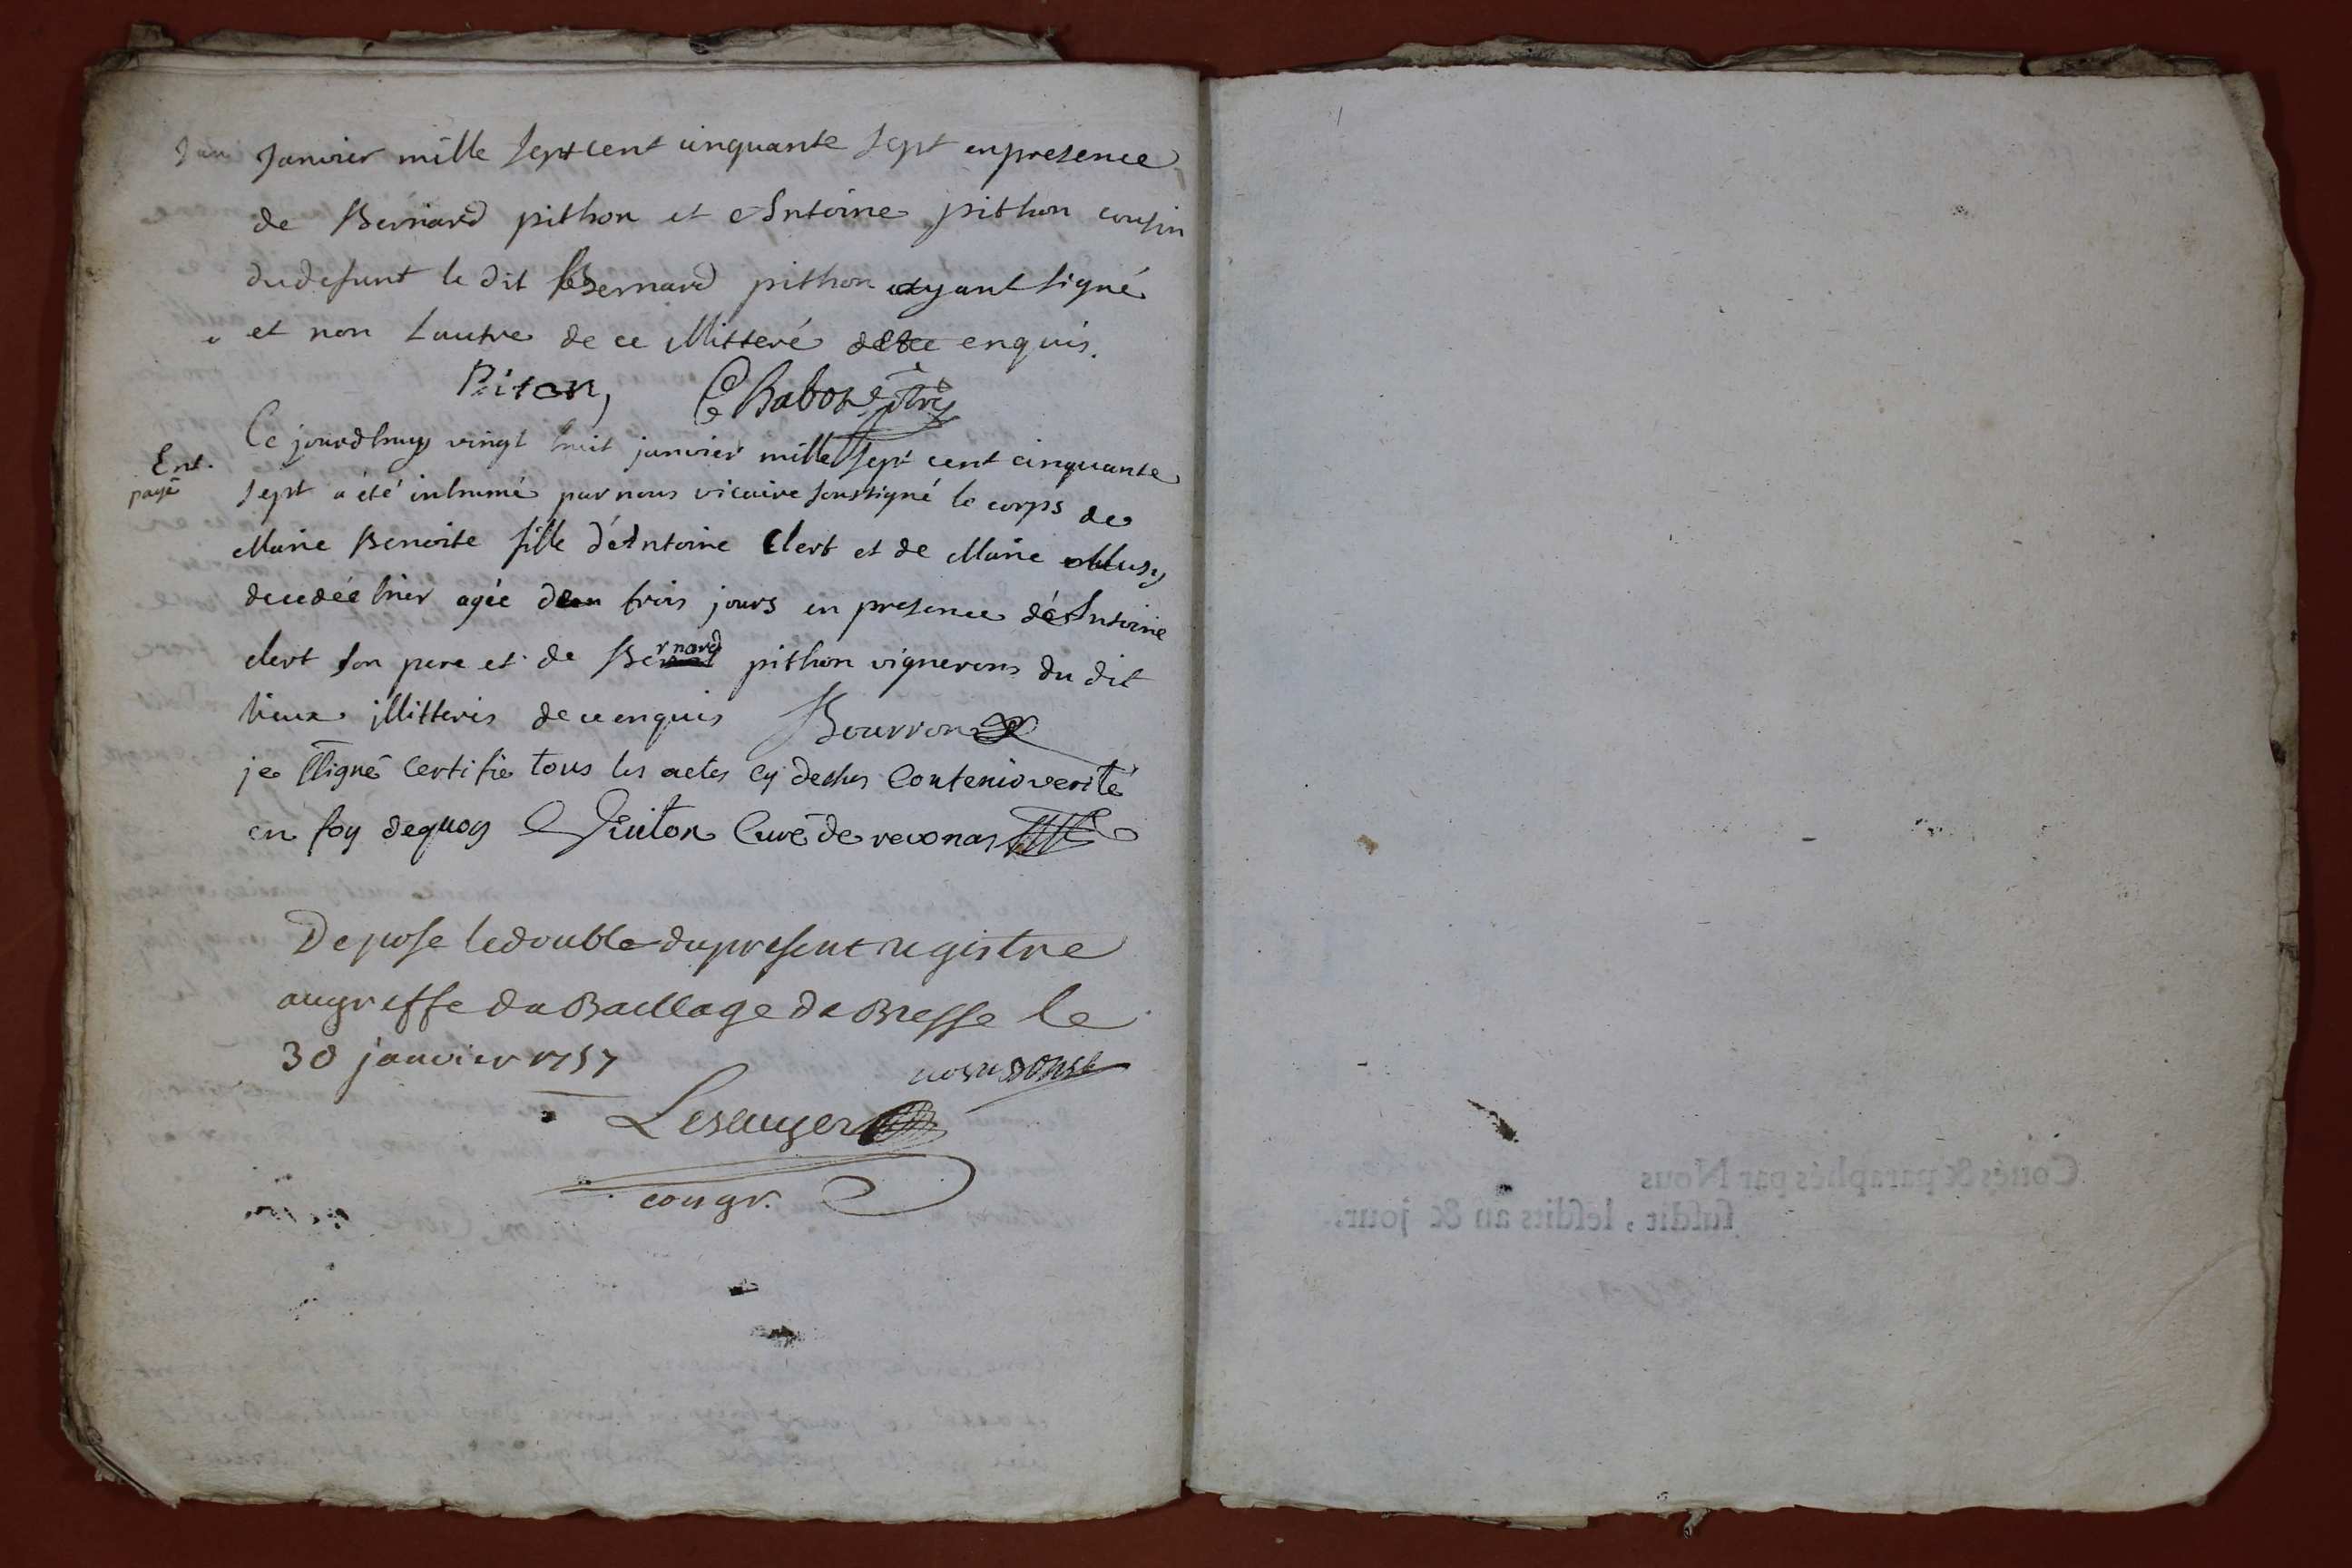 Janvier mille sept cent cinquante sept en presence
de Bernard pithon et Antoine pithon cousin
du defunt le dit Bernard pithon ayant signé
et non l'autre de ce illitteré enquis.
Piton, Chabot ptre
Ce jourdhuy vingt huit janvier mille sept cent cinquante
Ent.
payé
sept a été inhumé par nous vicaire soussigné le corps de
Marie Benoite fille d'Antoine Clert et de Marie
decedée hier agée de trois jours en presence d'Antoine
clert son pere et de Bernard pithon vignerons du dit
lieux illitteris de ce enquis Bourron
je ssigné Certifie tous les actes cy dessus Contenir verité
en foy dequoy Piiton Curé de revonas
Depose le double du present registre
au greffe du Baillage de Bresse le
30 janvier 1757
Lesauger
con gr.
Cotés & paraphés par Nous
susdit, lesdits an & jour.